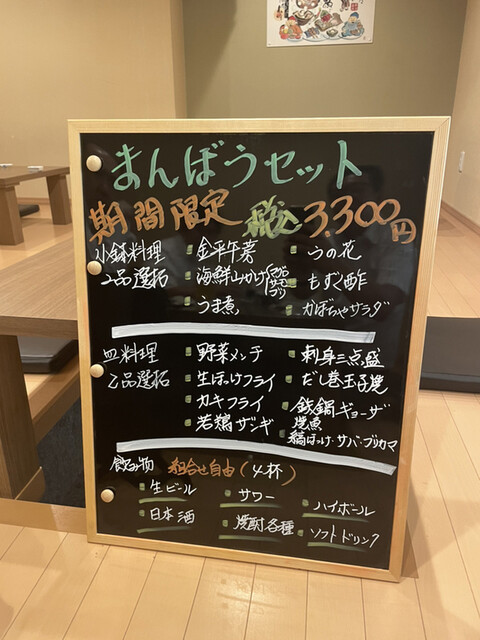 まんぼうセット
期間限定 税込 3.300円
小鉢料理 金平午蒡 うの花
2品選択 海鮮山かけ もずく酢
うま煮 かぼちゃサラダ
皿料理 野菜メンチ 刺身三点盛
2品選択 生ほっけフライ だし巻玉子焼
カキフライ 鉄鍋ギョーザ
若鶏ザンギ 焼魚
縞ほっけ・サバ・ブリカマ
飲み物 組合せ自由(4杯)
生ビール サワー ハイボール
日本酒 焼酎各種 ソフトドリンク